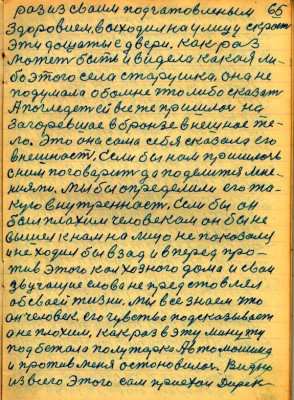 66
раз из своим подготовленым
Здоровием, выходил на улицу скрось
Эти дощаты с двери, как раз
может быть и видела какая ли-
бо этого села старушка, она не
подумала обо мне что либо сказать
А поглядеть ей все же пришлось на
загоревшае в бронзе внешное те-
ло. Это она сама себя сказала его
внешность, Если бы нам пришлось
с ним поговорить да поделится мне-
ниями. Мы бы определили его та-
кую внутренность, Если бы он
был плахим человеком он бы не
вышел к нам на лицо не показалу
и не ходил бы взад и вперед про-
тив этого колхозного дома и свои
звучащие слова не представлял
об своей жизни. Мы все знаем что
он человек, его чувство подсказывает
он не плохим, как раз в эту минуту
подбежала полуторка Автомошина
и против меня остоновилась. Видно
из всего этого сам приехал Дирек-